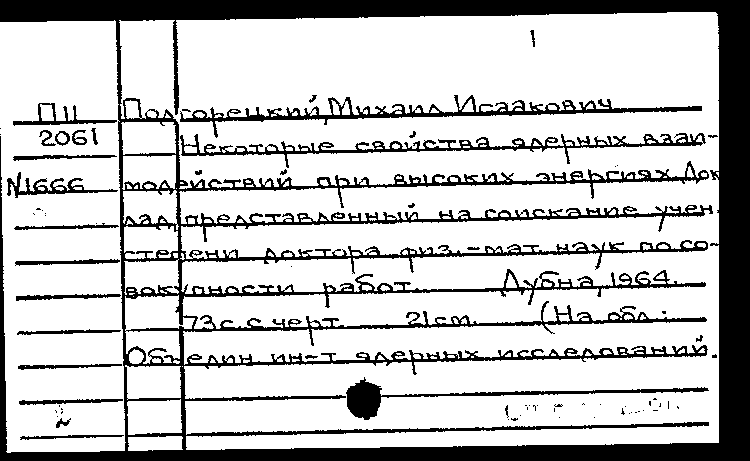 1
П11 Подгорецкий, Михаил Исаакович
2061 Некоторые свойства ядерных взаи-
№1666 модействий при высоких энергиях. Док
лад, представленный на соискание учен.
степени доктора физ.-мат. наук по со-
вокупности работ. Дубна, 1964.
73 с. с черт. 21 см. (На обл.:
Объедин. ин-т ядерных исследований.
2